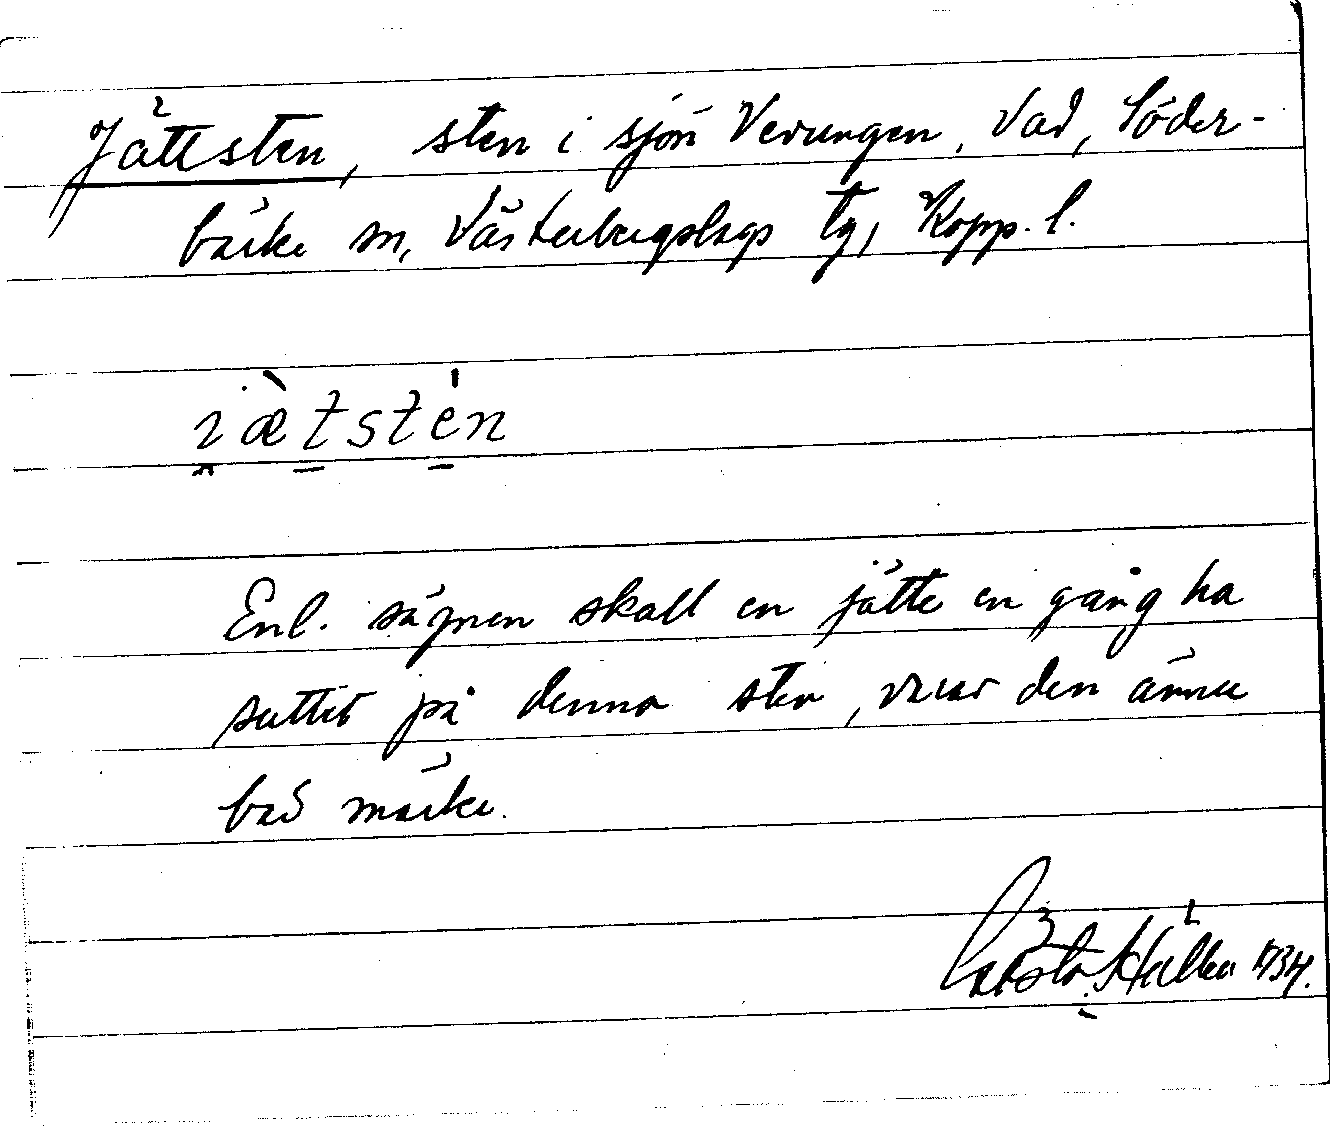 Jättsten, sten i sjön Verungen, Vad, Söder-
bärke sn, Västerbergslags tg, Kopp. l.
ı̯æ̀tstén
Enl. sägnen skall en jätte en gång ha
suttit på denna sten, varav den ännu
bär märke.
1934.